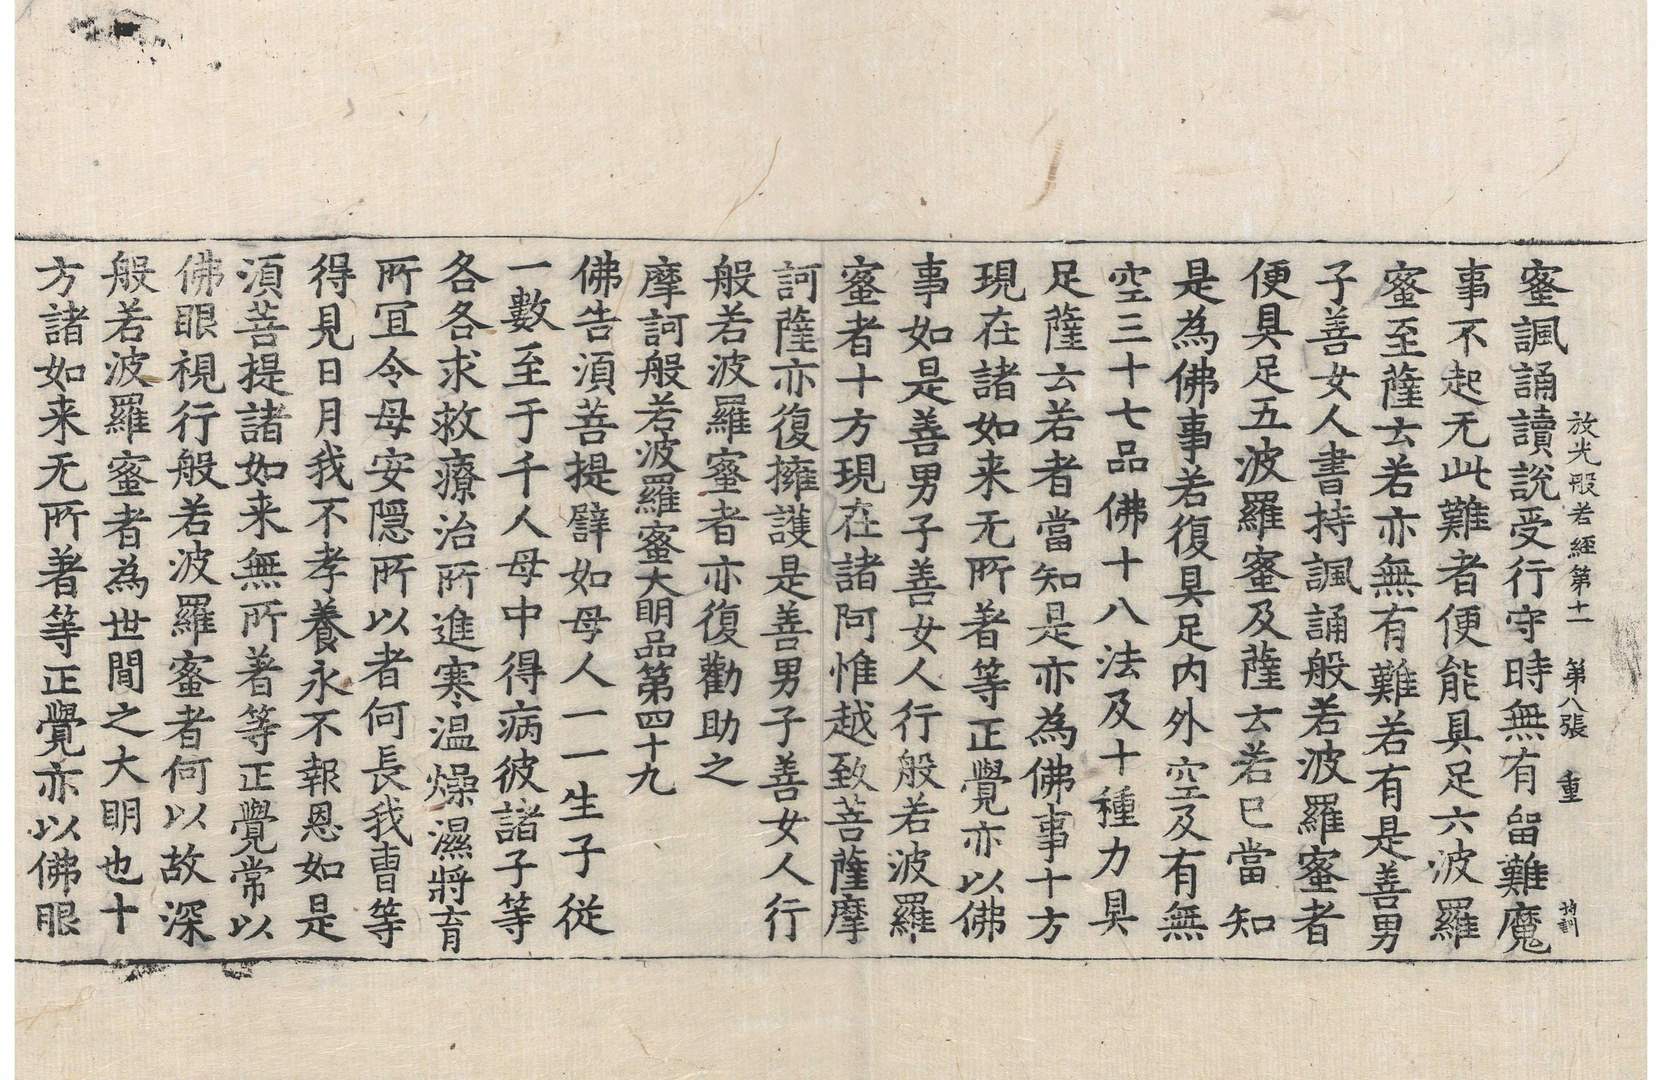 放光般若經第十一 第八張 重
蜜諷誦讀說受行守時無有留難魔
事不起无此難者便能具足六波羅
蜜至薩云若亦無有難若有是善男
子善女人書持諷誦般若波羅蜜者
便具足五波羅蜜及薩云若已當知
是為佛事若復具足内外空及有無
空三十七品佛十八法及十種力具
足薩云若者當知是亦為佛事十方
現在諸如来无所著等正覺亦以佛
事如是善男子善女人行般若波羅
蜜者十方現在諸阿惟越致菩薩摩
訶薩亦復擁護是善男子善女人行
般若波羅蜜者亦復勸助之
摩訶般若波羅蜜大明品第四十九
佛告湏菩提譬如母人一一生子從
一數至于千人母中得病彼諸子等
各各求救療治所進寒温燥濕將育
所冝令母安隱所以者何長我曺等
得見日月我不孝養永不報恩如是
湏菩提諸如来無所著等正覺常以
佛眼視行般若波羅蜜者何以故深
般若波羅蜜者為世間之大明也十
方諸如来无所著等正覺亦以佛眼